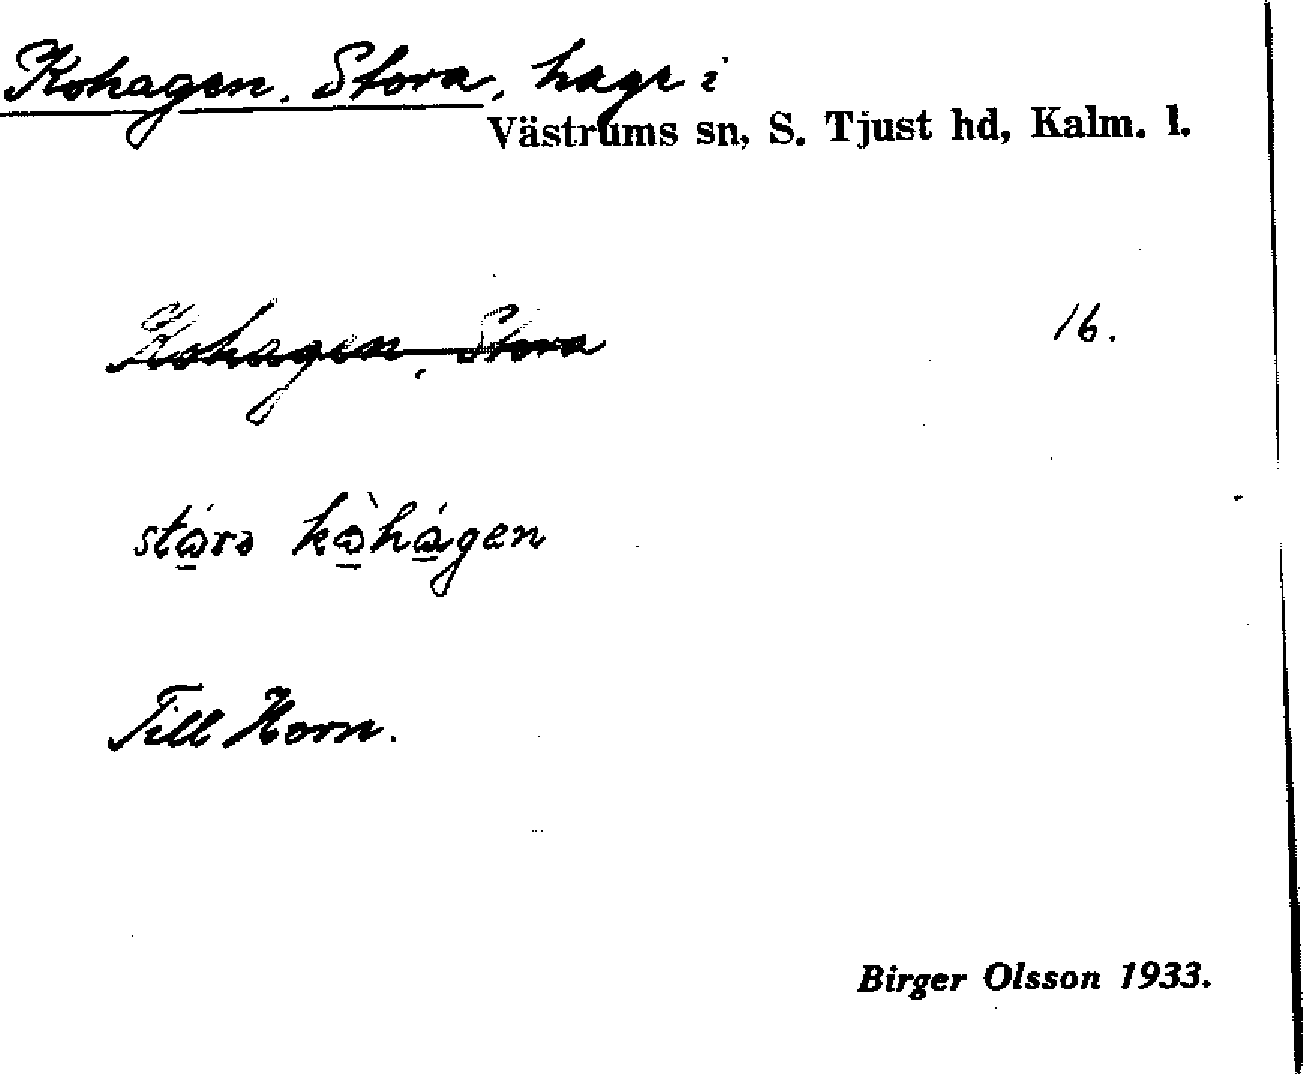 Kohagen, Stora, hage i
Västrums sn, S. Tjust hd, Kalm. l.
Kohagen, Stora 16.
stórə kòhágen
Till Horn.
Birger Olsson 1933.